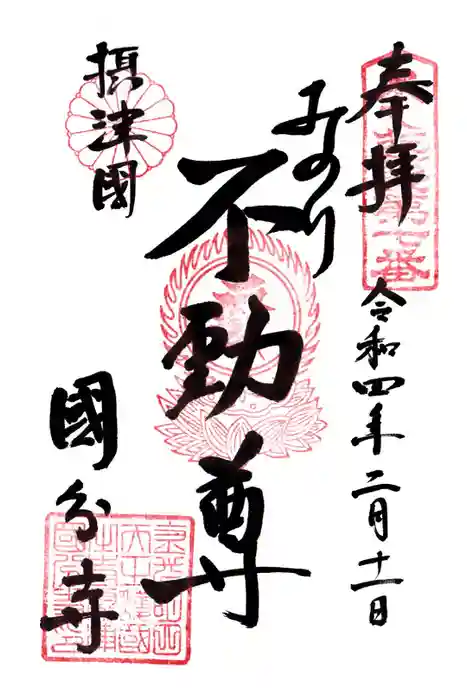 奉拝
令和四年二月十一日
みのり
不動尊
摂津國
國分寺